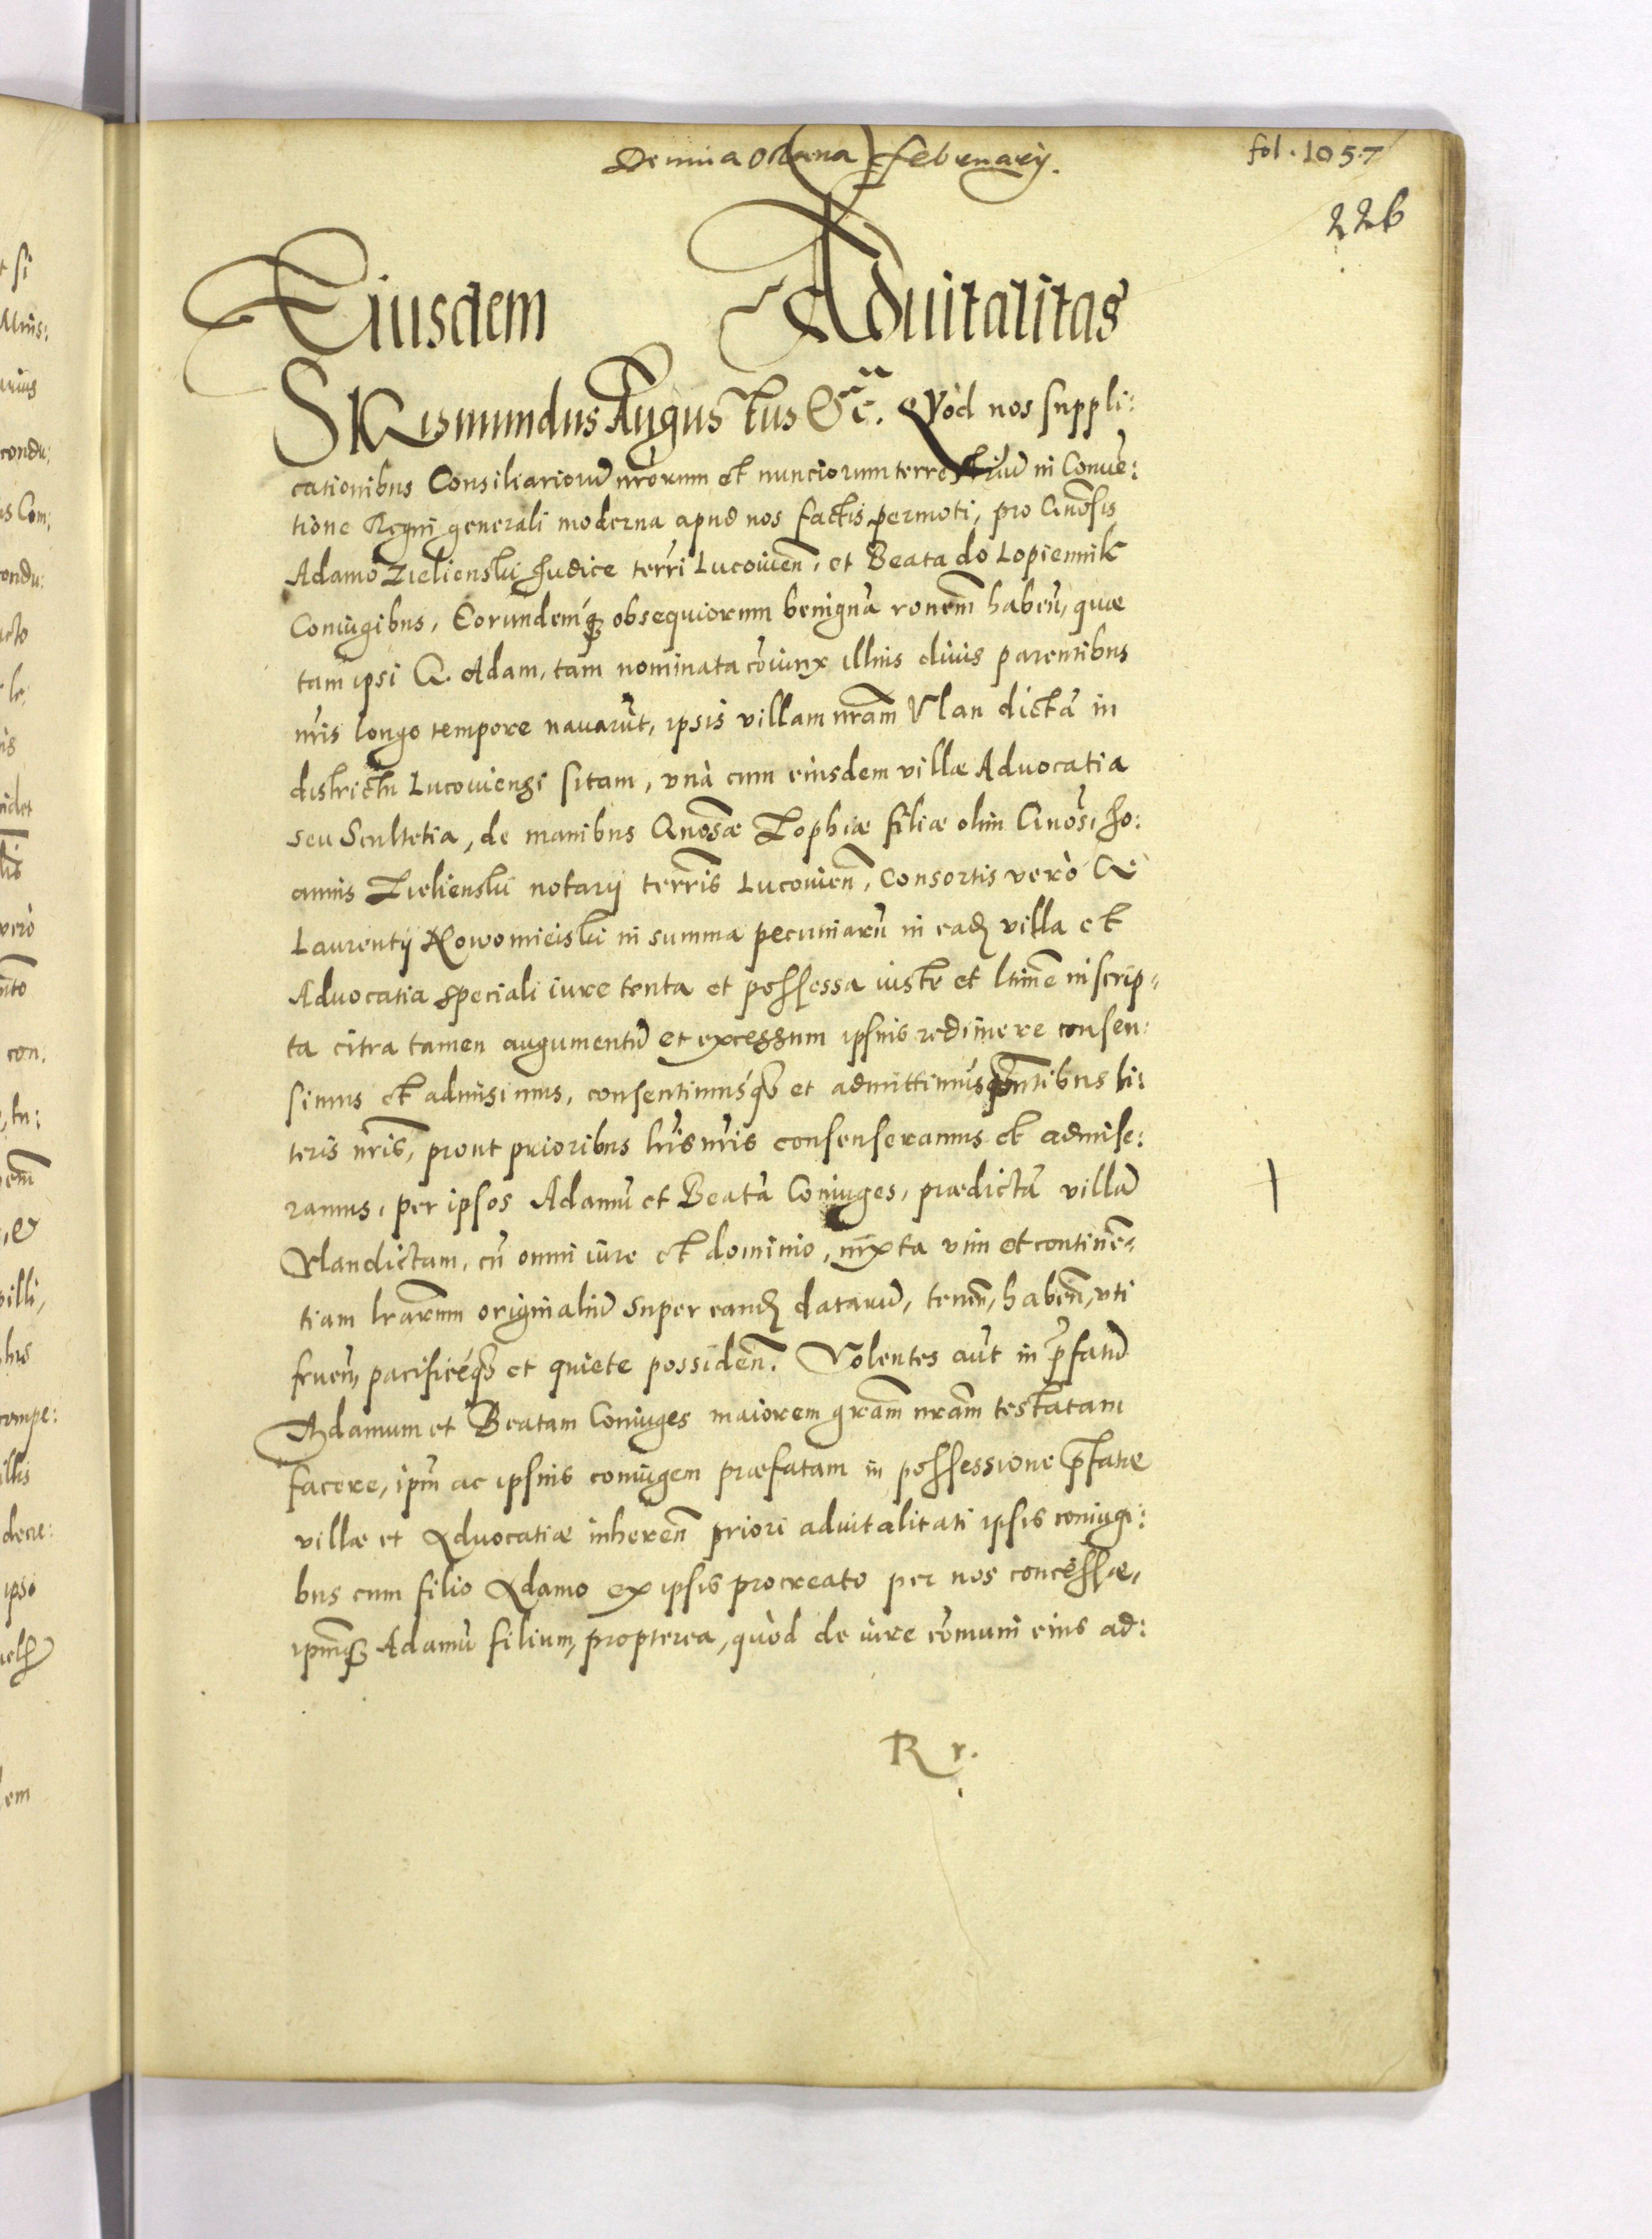 Decima octava februarij.
fol. 1057
226
Eiusdem Aduitalitas
Sigismundus Augustus &c. Quòd nos suppli:
cationibus Consiliariorũ nrõrum et nunciorum terrestriũ in Conuẽ:
tione Regni generali moderna apud nos factis permoti, pro Gnõsis
Adamo Zielienski Judice terrĩ Lucouieñ, et Beata do Lopiennik
Coniugibus, Eorundemq́ꝫ obsequiorum benignã ronem̃ habeñ, quæ
tam ipsi G. Adam, tam nominata cõiunx illius diuis parentibus
nrĩs longo tempore nauarũt, ipsis villam nrãm Vlan dictã in
districtu Lucouiensi sitam, vnà cum eiusdem villæ Aduocatia
seu Scultetia, de manibus Gnosæ̃ Zophiæ filiæ olim Gnosĩ Jo:
annis Zielienski notarij terrĩs Lucouieñ, Consortis verò G
Laurentij Nowomieiski in summa pecuniarũ in eadꝫ villa et
Aduocatia speciali iure tenta et possessa iuste et ltimẽ inscrip-
ta citra tamen augumentũ et excessum ipsius redimere consen:
simus et admisimus, consentimusq́ꝫ et admittimus pñtibus li:
teris nrĩs, prout prioribus lrĩs nrĩs consenseramus et admise:
ramus, per ipsos Adamũ et Beatã Coniuges, prædictã villã
Vlan dictam, cũ omni iure et dominio, iuxta vim et continẽ-
tiam lrãrum originaliũ super eandꝫ datarũ, teneñ, habeñ, vti
frueñ, pacificeq́ꝫ et quiete possideñ. Volentes aũt in p̃fatũ
Adamum et Beatam Coniuges maiorem grãm nrãm testatam
facere, ipm̃ ac ipsius coniugem præfatam in possessione p̃fatæ
villæ et Aduocatiæ inhereñ priori aduitalitati ipsis coniugi:
bus cum filio Adamo ex ipsis procreato per nos concessæ,
ipm̃qꝫ Adamũ filium, propterea, quòd de iure cõmuni eius ad:
R r.